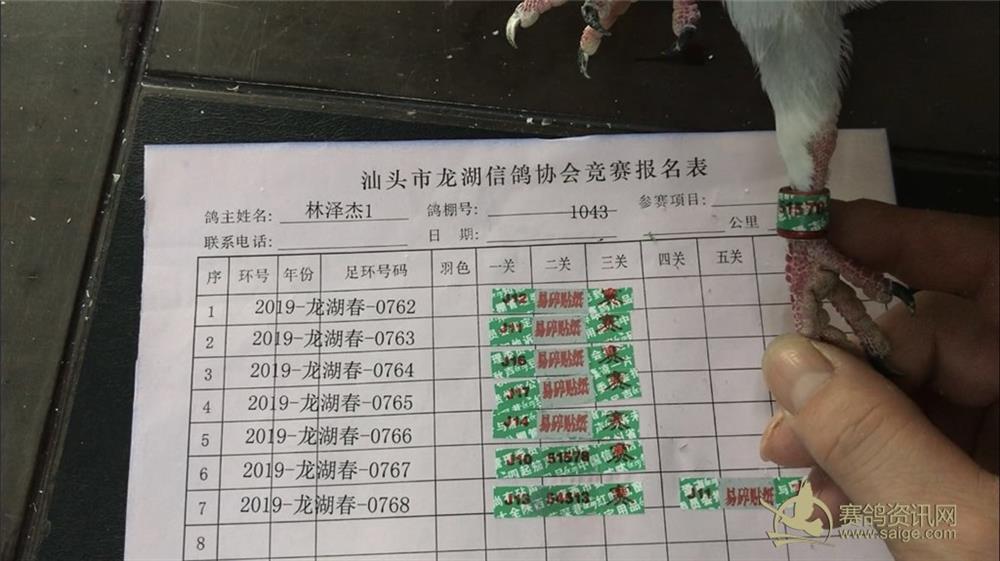 汕头市龙湖信鸽协会竞赛报名表
鸽主姓名: 林泽杰1 鸽棚号: 1043 参赛项目:
联系电话: 日 期: 公里
序 环号 年份 足环号码 羽色 一关 二关 三关 四关 五关
1 2019-龙湖春-0762 J12 易碎贴纸 赛
2 2019-龙湖春-0763 J11 易碎贴纸 赛
3 2019-龙湖春-0764 J16 易碎贴纸 赛
4 2019-龙湖春-0765 J17 易碎贴纸 赛
5 2019-龙湖春-0766 J14 易碎贴纸 赛
6 2019-龙湖春-0767 J10 51578 赛
7 2019-龙湖春-0768 J13 54513 赛 J11 易碎贴纸
8
赛鸽资讯网
www.saige.com